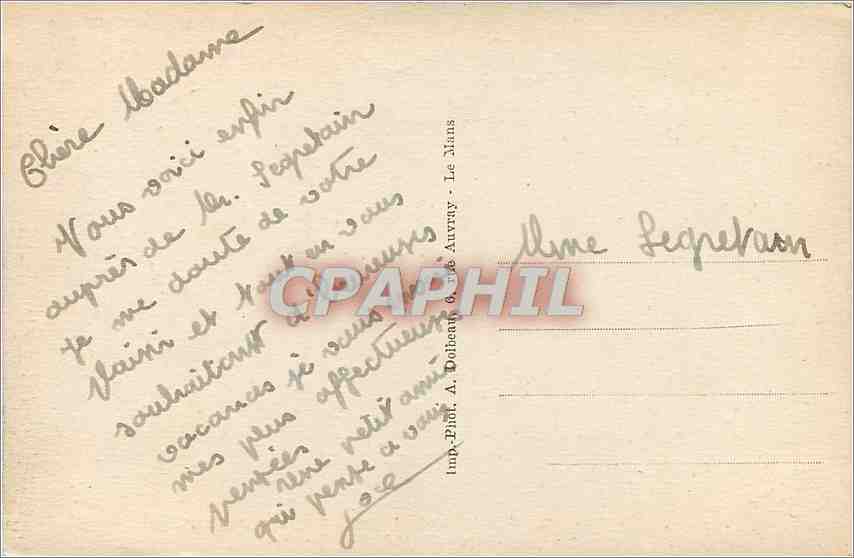 Chère Madame
Vous voici enfin
auprès de Mr. Segretain
je me doute de votre
Plaisir et tout en vous
souhaitant d'heureuses
vacances je vous
mes plus affectueuse
pensées
petit ami
qui pense a vous
Imp.-Phot. A. Dolbeau, 6, rue Auvray - Le Mans
Mme Segretain
CPAPHIL